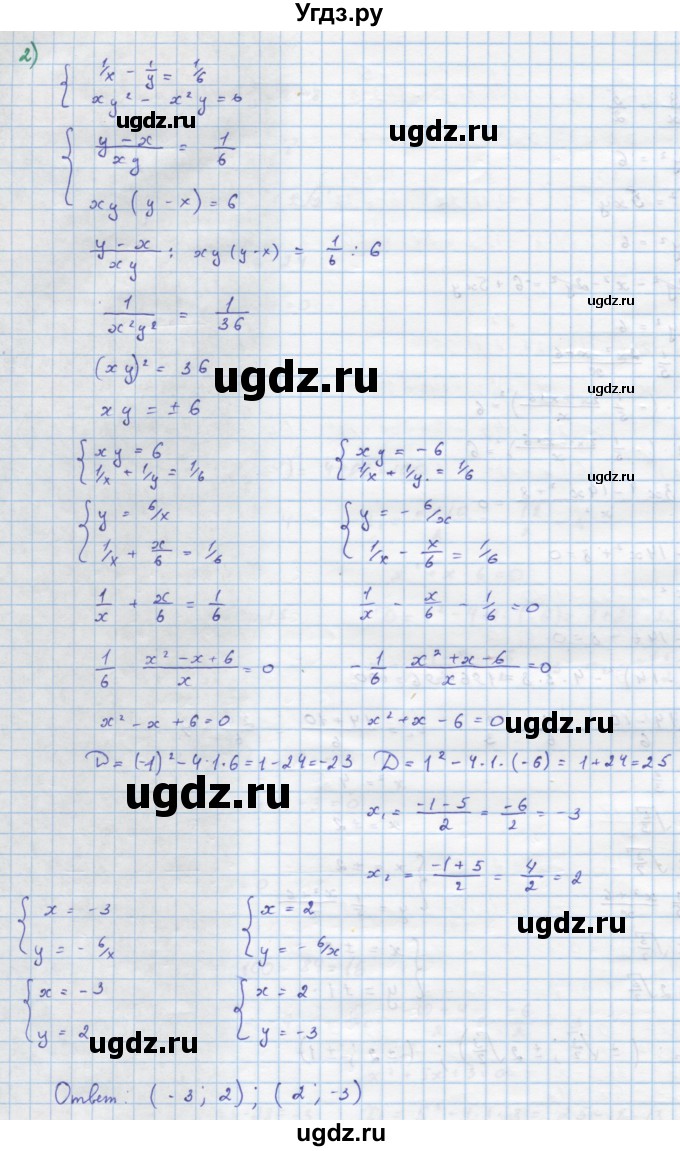 Угдз.ру
2)
{ 1/x - 1/y = 1/6
xy² - x²y = 6
ugdz.ru
ugdz.ru
{ (y - x)/(xy) = 1/6
xy (y - x) = 6
(y - x)/(xy) : xy (y - x) = 1/6 : 6
1/(x²y²) = 1/36
ugdz.ru
(xy)² = 36
ugdz.ru
ugdz.ru
xy = ± 6
{ xy = 6 { xy = -6
1/x + 1/y = 1/6 1/x + 1/y = 1/6
ugdz.ru
{ y = 6/x { y = - 6/x
1/x + x/6 = 1/6 1/x - x/6 = 1/6
1/x + x/6 = 1/6 1/x - x/6 - 1/6 = 0
1/6 (x² - x + 6)/x = 0 - 1/6 (x² + x - 6)/x = 0
x² - x + 6 = 0 x² + x - 6 = 0
ugdz.ru
D = (-1)² - 4·1·6 = 1 - 24 = -23 D = 1² - 4·1·(-6) = 1 + 24 = 25
ugdz.ru
x₁ = (-1 - 5)/2 = -6/2 = -3
x₂ = (-1 + 5)/2 = 4/2 = 2
{ x = -3 { x = 2
ugdz.ru
y = - 6/x y = - 6/x
{ x = -3 { x = 2
y = 2 y = -3
ugdz.ru
Ответ: (-3; 2); (2; -3)
ugdz.ru